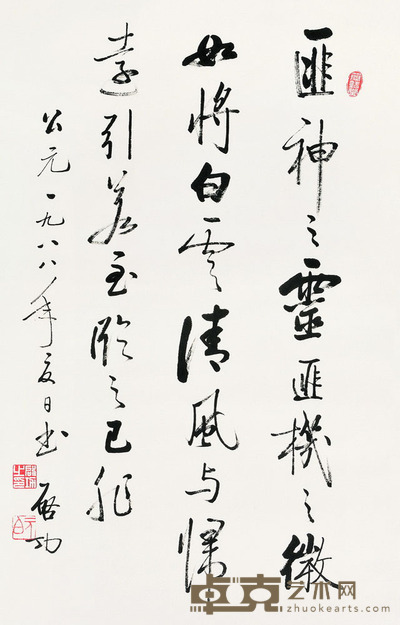 匪神之靈匪機之微
如將白雲清風与歸
遠引若至臨之已非
公元一九八八年夏日書
啓功
卓克艺术网
zhuokearts.com